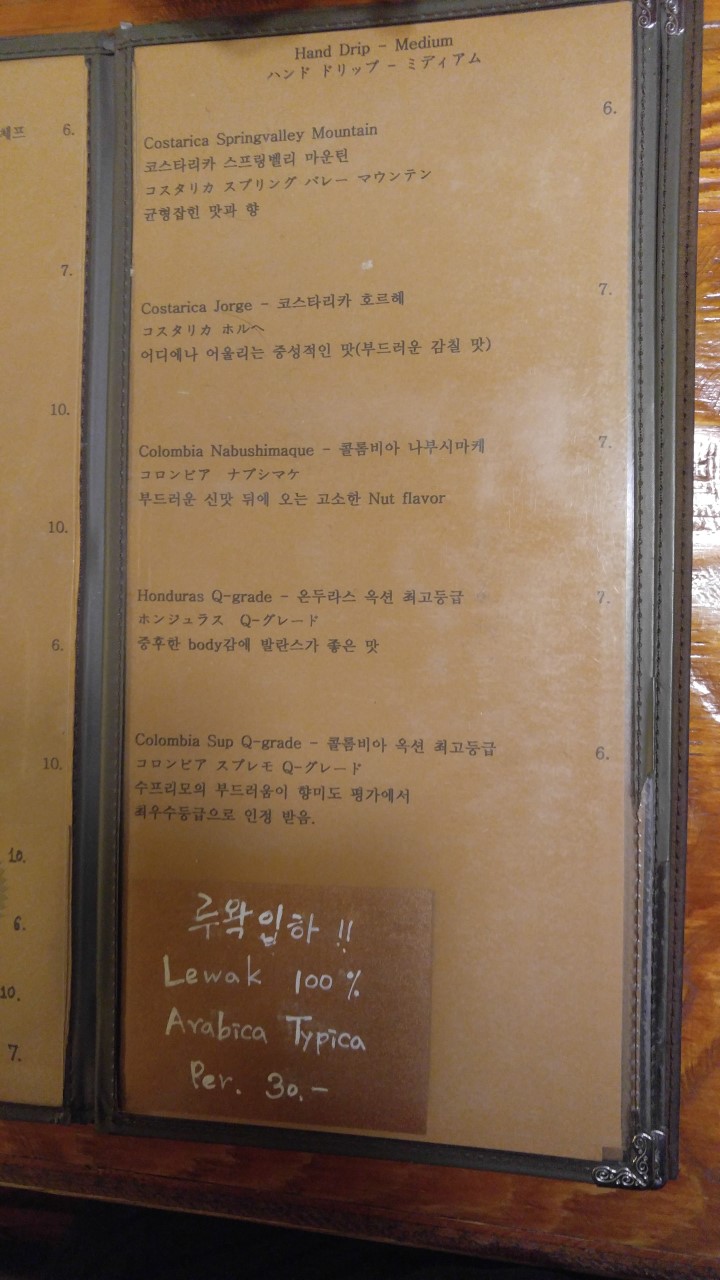 체프 6.
7.
10.
10.
6.
10.
10.
6.
10.
7.
Hand Drip - Medium
ハンド ドリップ - ミディアム
6.
Costarica Springvalley Mountain
코스타리카 스프링벨리 마운틴
コスタリカ スプリング バレー マウンテン
균형잡힌 맛과 향
Costarica Jorge - 코스타리카 호르헤 7.
コスタリカ ホルヘ
어디에나 어울리는 중성적인 맛(부드러운 감칠 맛)
Colombia Nabushimaque - 콜롬비아 나부시마케 7.
コロンビア ナブシマケ
부드러운 신맛 뒤에 오는 고소한 Nut flavor
Honduras Q-grade - 온두라스 옥션 최고등급 7.
ホンジュラス Q-グレード
중후한 body감에 발란스가 좋은 맛
Colombia Sup Q-grade - 콜롬비아 옥션 최고등급 6.
コロンビア スプレモ Q-グレード
수프리모의 부드러움이 향미도 평가에서
최우수등급으로 인정 받음.
루왁입하 !!
Lewak 100%
Arabica Typica
Per. 30.-